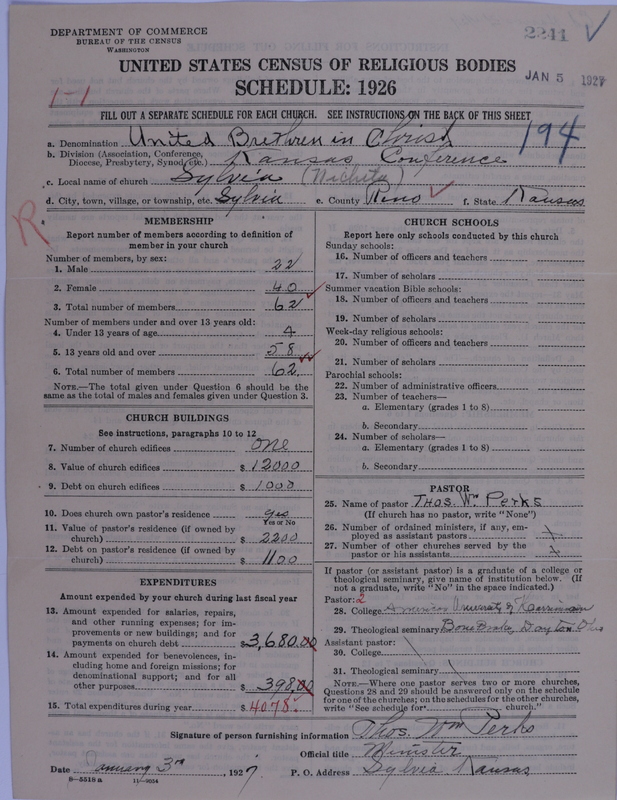 DEPARTMENT OF COMMERCE
BUREAU OF THE CENSUS
WASHINGTON
2241
UNITED STATES CENSUS OF RELIGIOUS BODIES
JAN 5 1927
SCHEDULE: 1926
1-1
FILL OUT A SEPARATE SCHEDULE FOR EACH CHURCH. SEE INSTRUCTIONS ON THE BACK OF THIS SHEET
194
a. Denomination United Brethren in Christ
b. Division (Association, Conference, Diocese, Presbytery, Synod, etc.) Kansas Conference
c. Local name of church Sylvia (Wichita)
d. City, town, village, or township, etc. Sylvia e. County Reno f. State Kansas
R
MEMBERSHIP
Report number of members according to definition of
member in your church
Number of members, by sex:
1. Male 22
2. Female 40
3. Total number of members 62
Number of members under and over 13 years old:
4. Under 13 years of age 4
5. 13 years old and over 58
6. Total number of members 62
NOTE.—The total given under Question 6 should be the
same as the total of males and females given under Question 3.
CHURCH BUILDINGS
See instructions, paragraphs 10 to 12
7. Number of church edifices one
8. Value of church edifices $ 12000
9. Debt on church edifices $ 1000
10. Does church own pastor's residence yes
Yes or No
11. Value of pastor's residence (if owned by
church) $ 2200
12. Debt on pastor's residence (if owned by
church) $ 1100
EXPENDITURES
Amount expended by your church during last fiscal year
13. Amount expended for salaries, repairs,
and other running expenses; for im-
provements or new buildings; and for
payments on church debt $ 3,680.00
14. Amount expended for benevolences, in-
cluding home and foreign missions; for
denominational support; and for all
other purposes $ 398.00
15. Total expenditures during year $ 4078.
CHURCH SCHOOLS
Report here only schools conducted by this church
Sunday schools:
16. Number of officers and teachers
17. Number of scholars
Summer vacation Bible schools:
18. Number of officers and teachers
19. Number of scholars
Week-day religious schools:
20. Number of officers and teachers
21. Number of scholars
Parochial schools:
22. Number of administrative officers
23. Number of teachers—
a. Elementary (grades 1 to 8)
b. Secondary
24. Number of scholars—
a. Elementary (grades 1 to 8)
b. Secondary
PASTOR
25. Name of pastor Thos. Wm Perks
(If church has no pastor, write "None")
26. Number of ordained ministers, if any, em-
ployed as assistant pastors
27. Number of other churches served by the
pastor or his assistants
If pastor (or assistant pastor) is a graduate of a college or
theological seminary, give name of institution below. (If
not a graduate, write "No" in the space indicated.)
Pastor: 2
28. College American University of
29. Theological seminary Dayton Ohio
Assistant pastor:
30. College
31. Theological seminary
NOTE.—Where one pastor serves two or more churches,
Questions 28 and 29 should be answered only on the schedule
for one of the churches; on the schedules for the other churches,
write "See schedule for church."
Signature of person furnishing information Thos. Wm Perks
Official title Minister
Date January 3rd, 1927 P. O. Address Sylvia Kansas
8—5518 a 11—9034